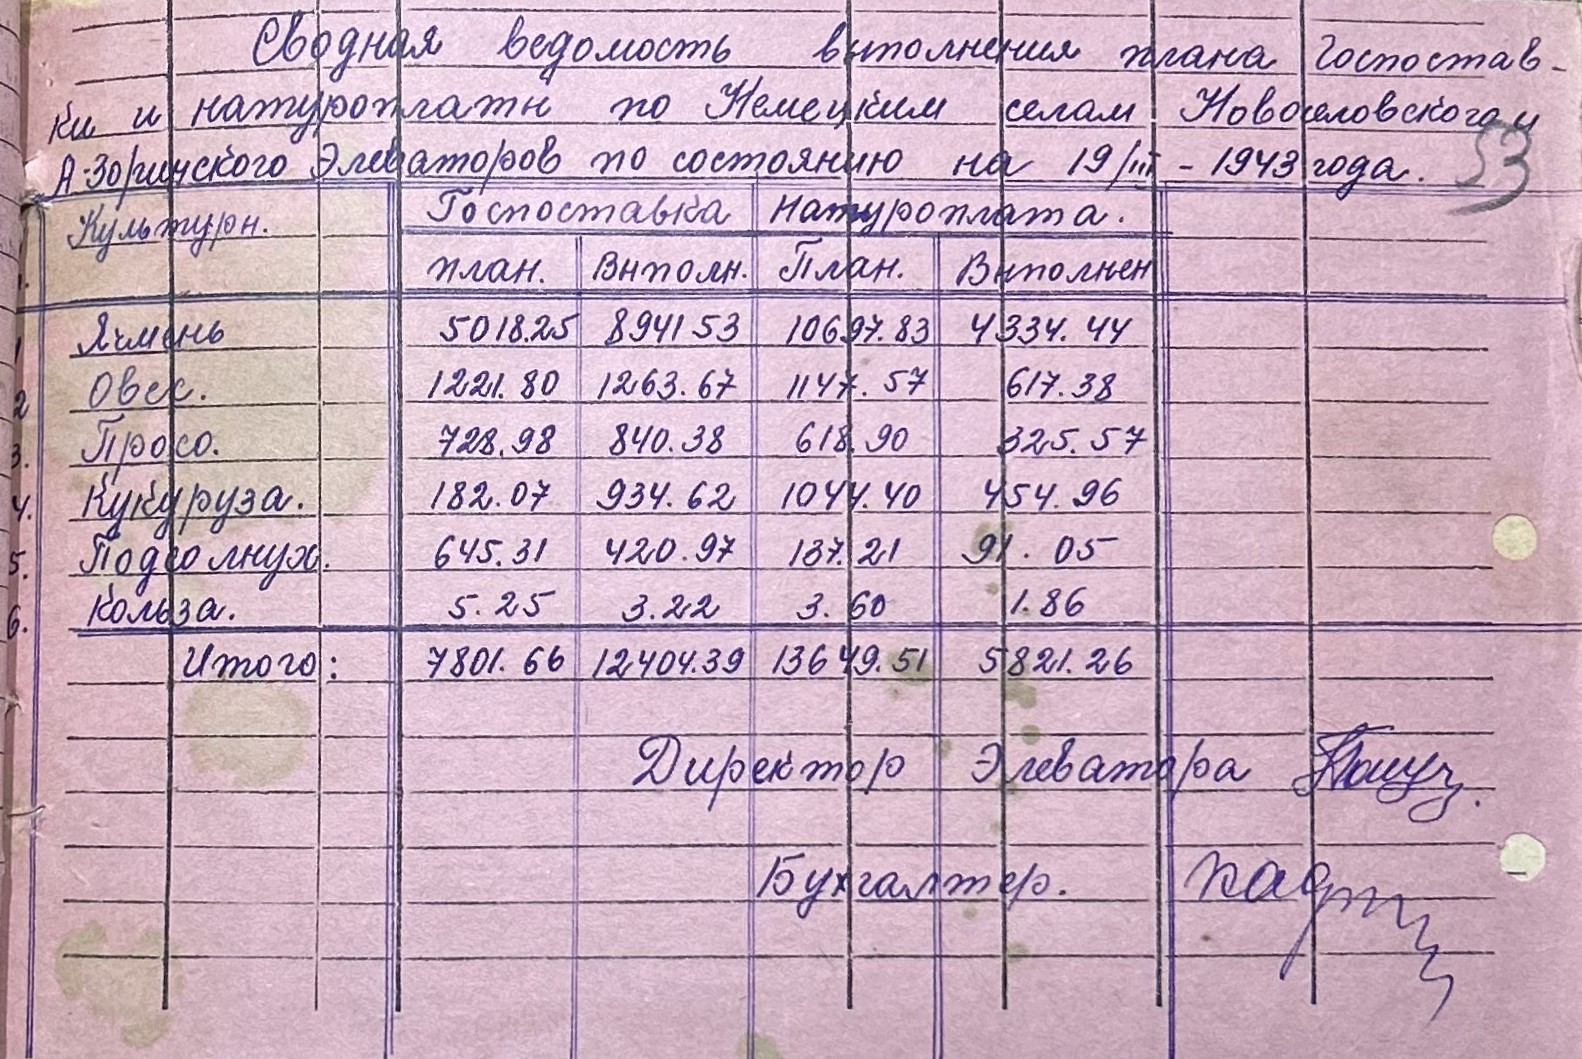 Сводная ведомость выполнения плана Госпостав-
ки и натуроплаты по Немецким селам Новоселовского и
А-Зоринского Элеваторов по состоянию на 19/III - 1943 года. 53
Культуры. Госпоставка Натуроплата.
план. Выполн. План. Выполнен
1 Ячмень 5018.25 8941 53 10697.83 4334.44
2 Овес. 1221.80 1263.67 1147.57 617.38
3. Просо. 728.98 840.38 618.90 325.57
4. Кукуруза. 182.07 934.62 1044.40 454.96
5. Подсолнух. 645.31 420.97 137.21 91.05
6. Кольза. 5.25 3.22 3.60 1.86
Итого: 7801.66 12404.39 13649.51 5821.26
Директор Элеватора
Бухгалтер.